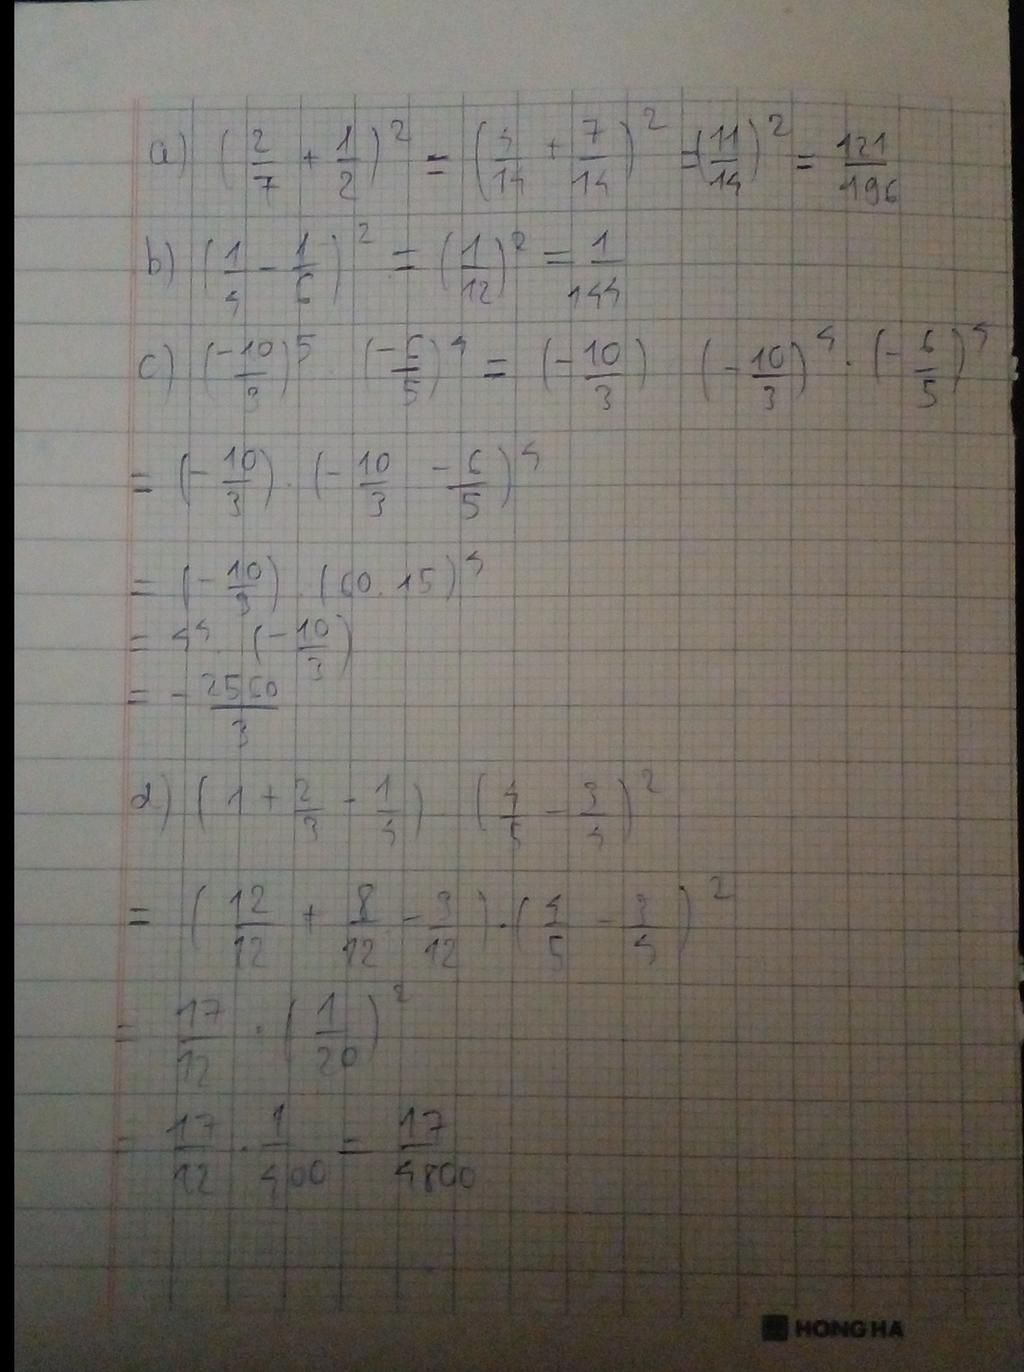 a) (2/7 + 1/2)^2 = (4/14 + 7/14)^2 = (11/14)^2 = 121/196
b) (1/4 - 1/6)^2 = (1/12)^2 = 1/144
c) (-10/3)^5 · (-6/5)^4 = (-10/3) (-10/3)^4 · (-6/5)^4
= (-10/3) · (-10/3 · -6/5)^4
= (-10/3) · (60 : 15)^4
= 4^4 · (-10/3)
= -2560/3
d) (1 + 2/3 - 1/4) (4/5 - 3/4)^2
= (12/12 + 8/12 - 3/12) · (4/5 - 3/4)^2
= 17/12 · (1/20)^2
= 17/12 · 1/400 = 17/4800
HONG HA